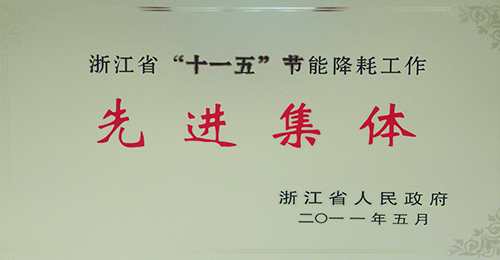 浙江省“十一五”节能降耗工作
先进集体
浙江省人民政府
二〇一一年五月